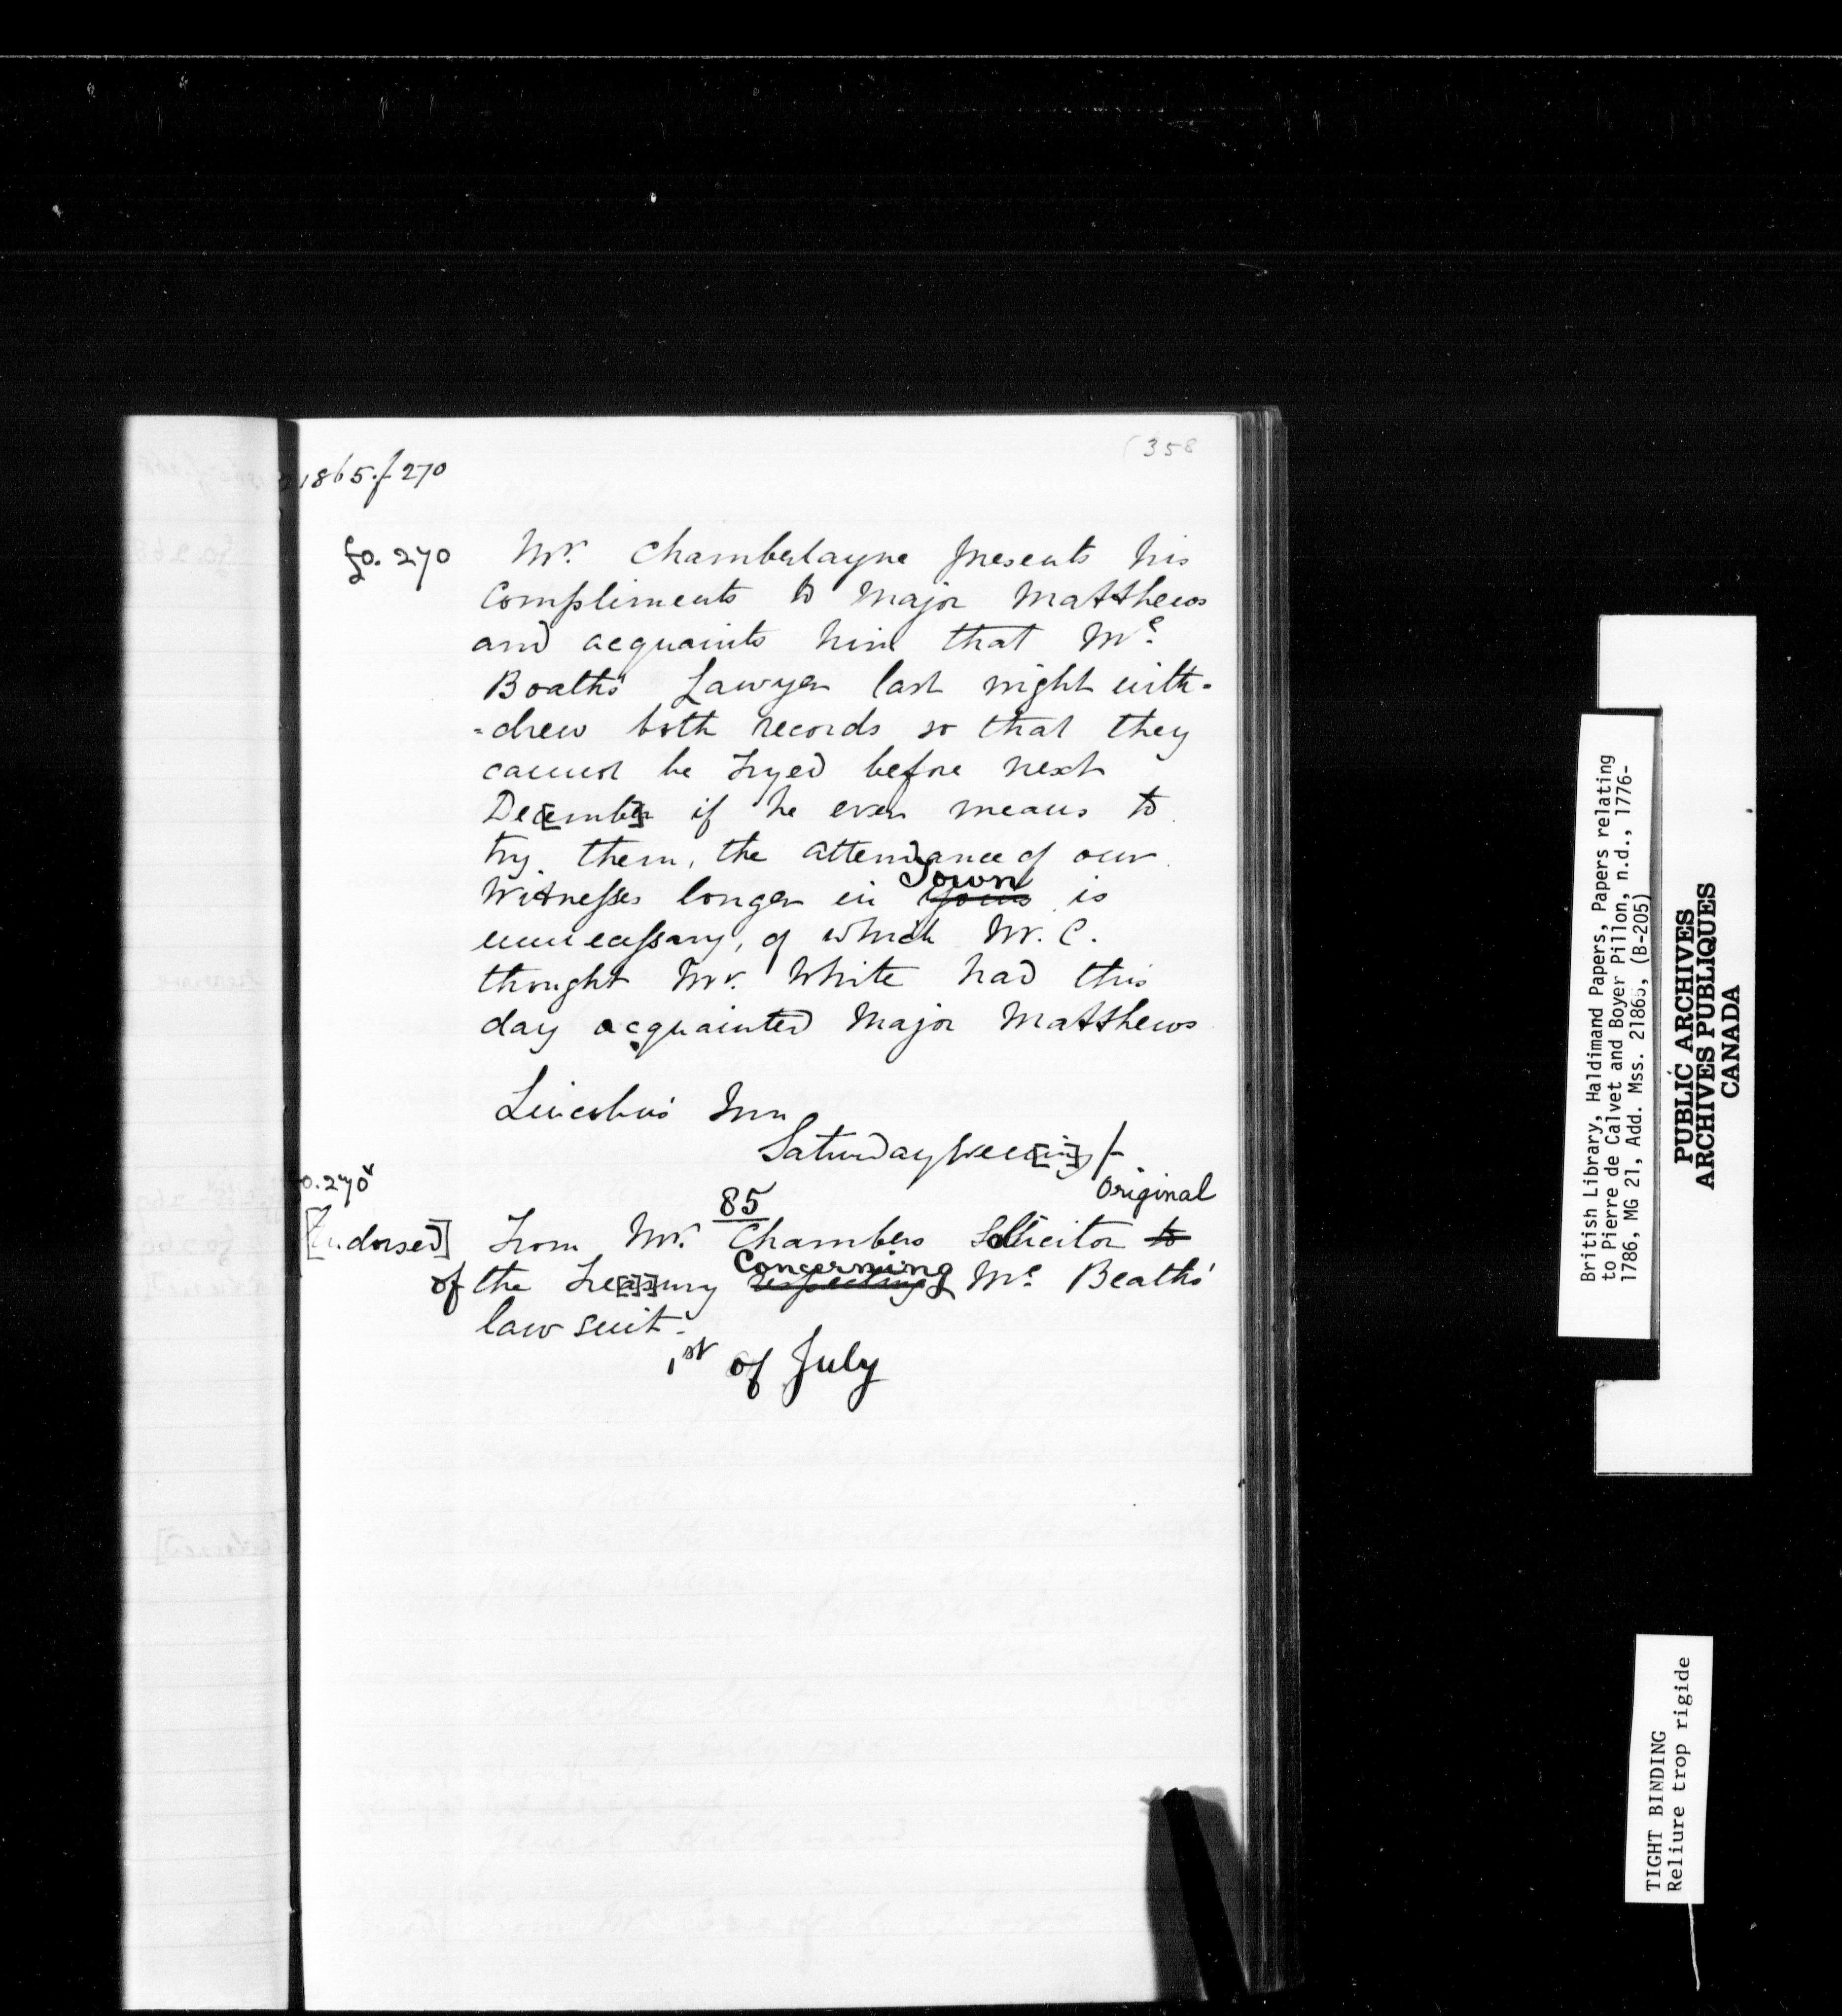 (358
21865.f270
fo. 270 Mr. Chamberlayne presents his
compliments to Major Matthews
and acquaints him that Mr.
Boaths' Lawyer last night with-
-drew both records so that they
cannot be tryed before next
Dec[embe]r if he ever means to
try them, the attendance of our
Witnesses longer in Town is
unnecessary, of which Mr. C.
thought Mr. White had this
day acquainted Major Matthews
Lincoln's Inn
Saturday Even[in]g /-
Original
fo. 270v
85
[Endorsed] From Mr. Chambers Sollicitor to
of the Tre[as]ury respecting Concerning Mr. Beath's
law suit.
1st of July
British Library, Haldimand Papers, Papers relating
to Pierre de Calvet and Boyer Pillon, n.d., 1776-
1786, MG 21, Add. Mss. 21865, (B-205)
PUBLIC ARCHIVES
ARCHIVES PUBLIQUES
CANADA
TIGHT BINDING
Reliure trop rigide